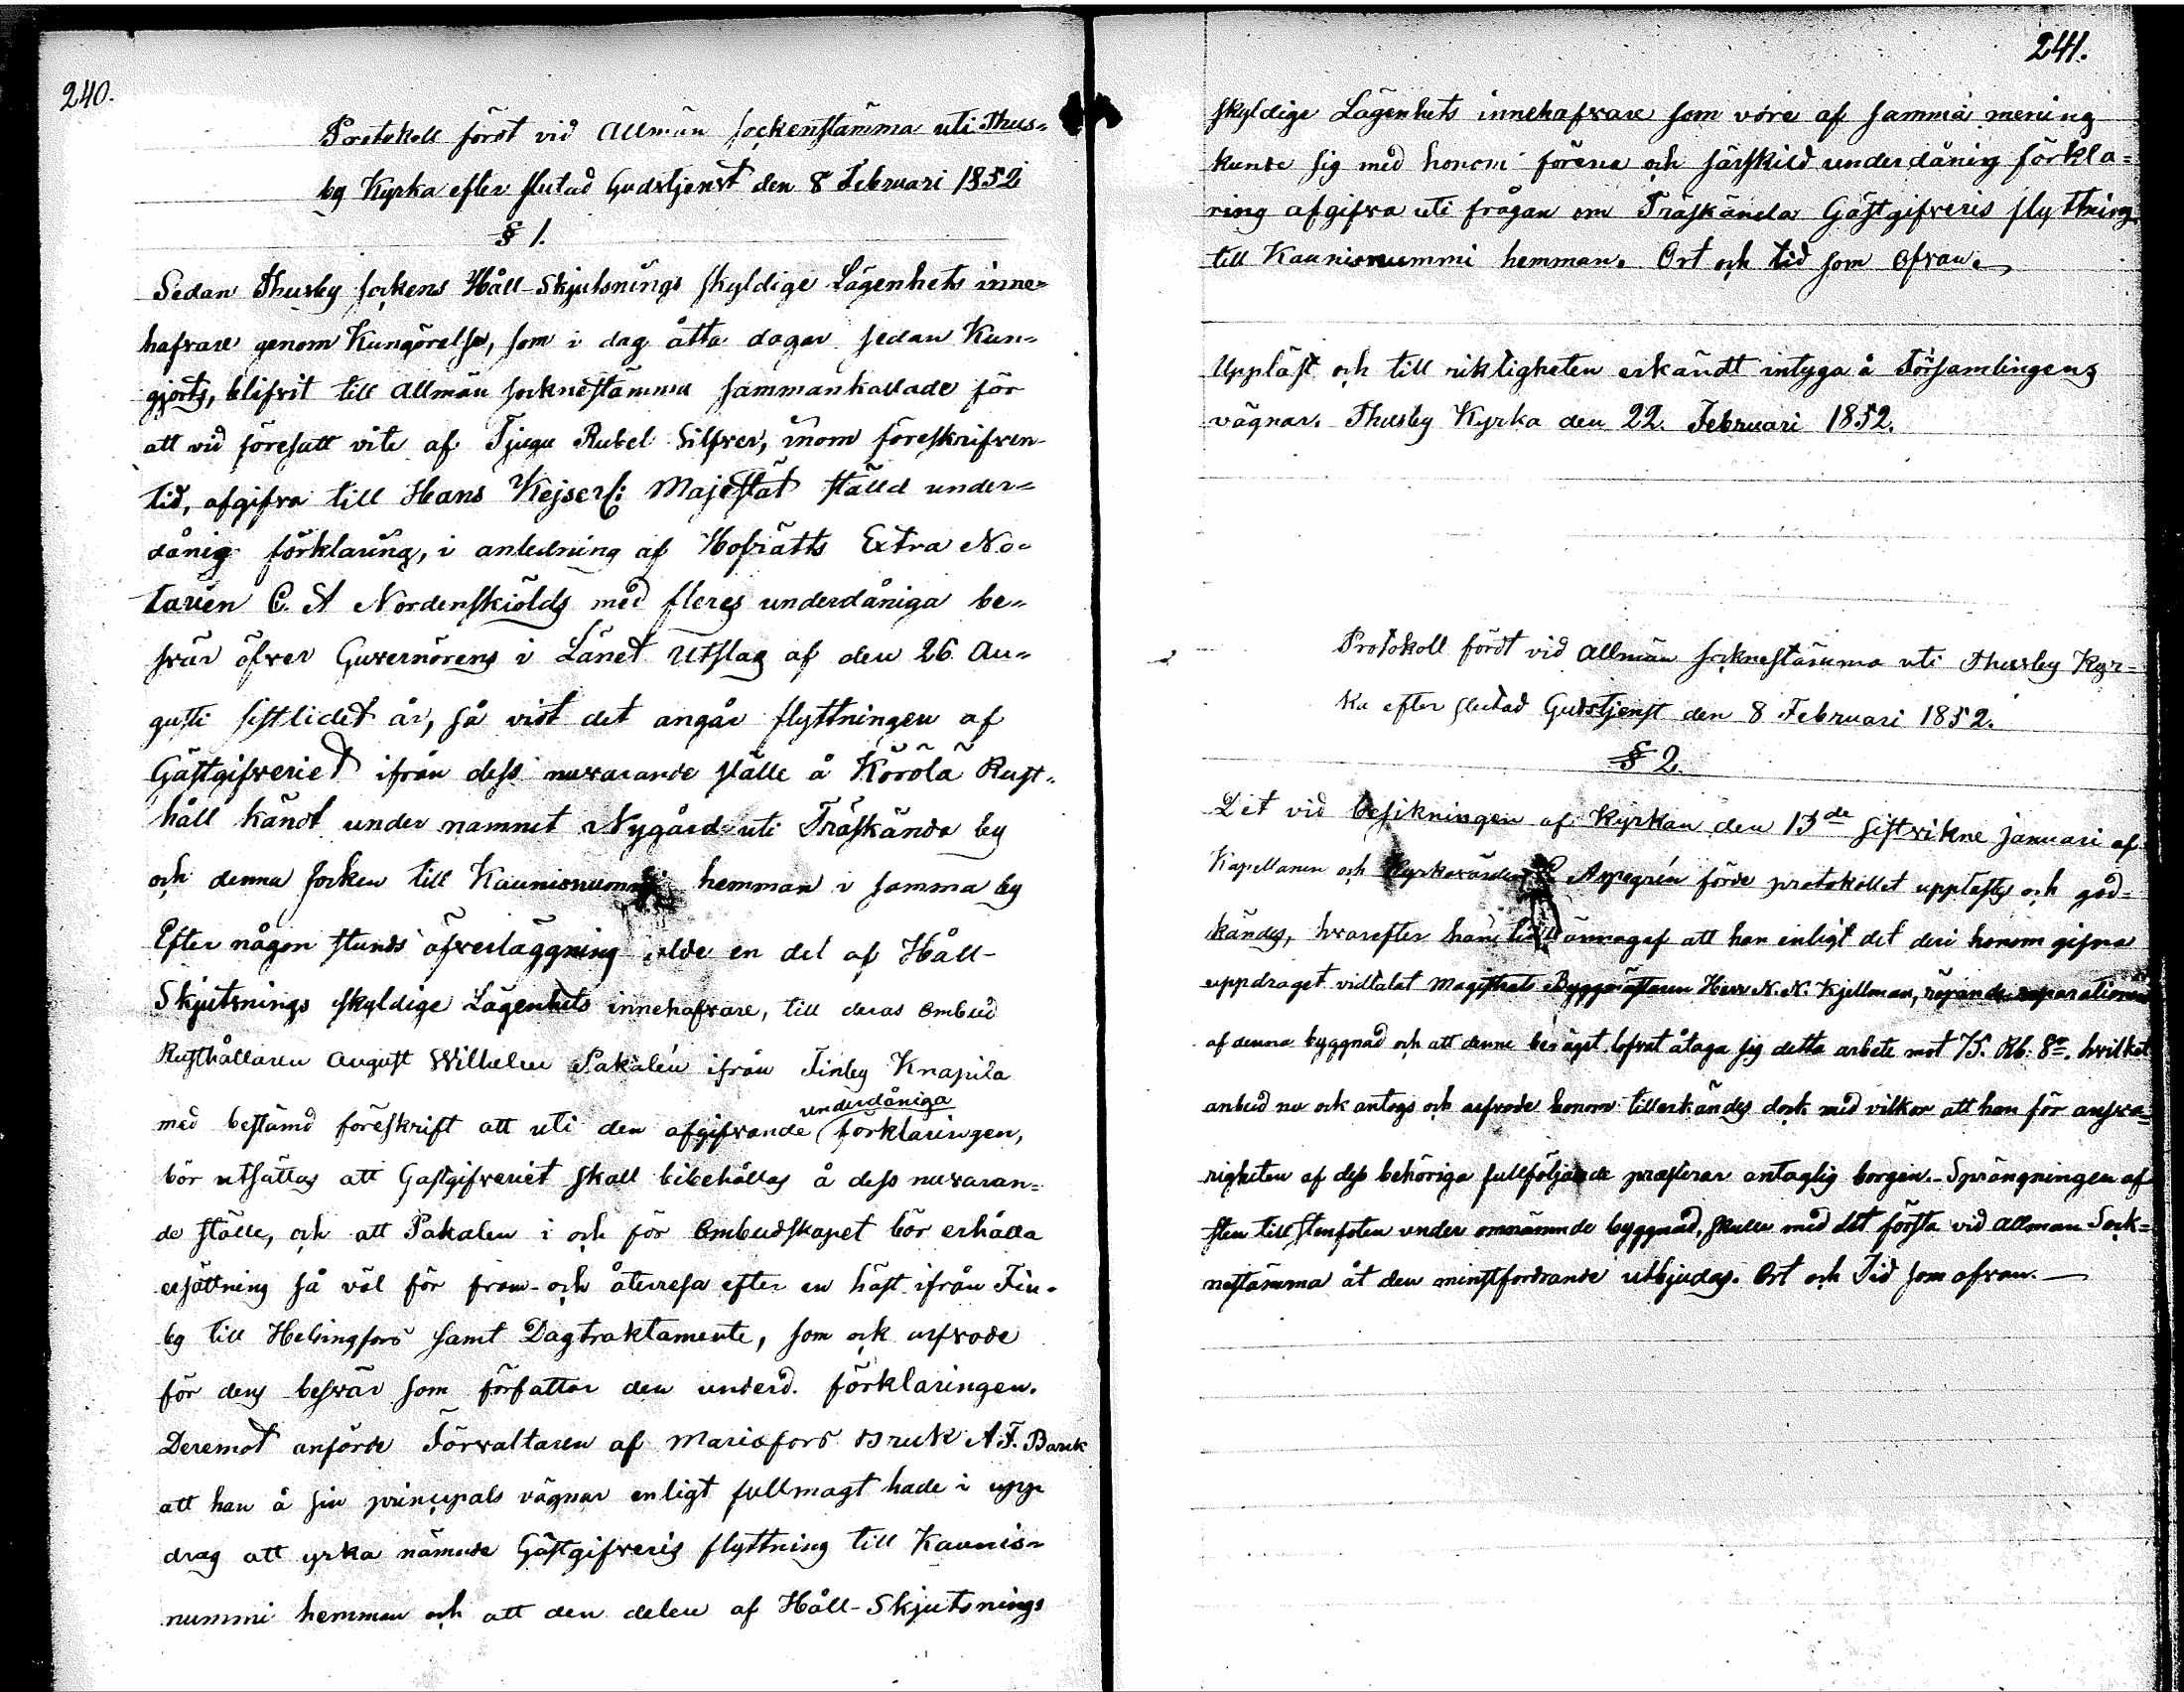 240.
Protokoll fördt vid Allmän sockenstämma uti Thus=
by Kyrka efter slutad Gudstjenst den 8 Februari 1852
§ 1.
Sedan Thusby sockens Håll-Skjutsnings skyldige Lägenhets inne=
hafvare genom Kungörelse, som i dag åtta dagar sedan Kun=
gjorts, blifvit till Allmän socknestämma sammankallade för
att vid föresatt vite af Tjugu Rubel Silfver, inom föreskrifven
tid, afgifva till Hans Kejserl: Majestät ställd under=
dånig förklaring, i anledning af Hofrätts Extra No=
tarien C. A Nordenskiölds med fleres underdåniga be=
svär öfver Guvernörens i Länet Utslag af den 26 Au=
gusti sistlidet år, så vidt det angår flyttningen af
Gästgifveriet ifrån dess nuvarande ställe å Körölä Rust=
håll kändt under namnet Nygård uti Träskända by
och denna socken till Kaunisnummi hemman i samma by
Efter någon stunds öfverläggning valde en del af Håll-
Skjutsnings skyldige Lägenhets innehafvare, till deras ombud
Rusthållaren August Wilhelm Pakalén ifrån Finby Knapila
med bestämd föreskrift att uti den afgifvande underdåniga förklaringen,
bör utsättas att Gästgifveriet skall bibehållas å dess nuvaran=
de ställe, och att Pakalen i och för Ombudskapet bör erhålla
ersättning så väl för fram- och återresa efter en häst ifrån Fin=
by till Helsingfors samt Dagtraktamente, som ock arfvode
för dens besvär som författar den underd. förklaringen.
Deremot anförde Förvaltaren af Mariefors Bruk A.F. Barck
att han å sin principals vägnar enligt fullmagt hade i upp
drag att yrka nämnde Gästgifveris flyttning till Kaunis=
nummi hemman och att den delen af Håll-Skjutsnings
241.
skyldige Lägenhets innehafvare som vore af samma mening
kunde sig med honom förena och särskild underdånig förkla=
ring afgifva uti frågan om Träskända Gästgifveris flyttning
till Kaunisnummi hemman. Ort och tid som ofvan.
Uppläst och till riktigheten erkändt intyga å Församlingens
vägnar. Thusby Kyrka den 22. Februari 1852.
Protokoll fördt vid Allmän socknestämma uti Thusby Kyr=
ka efter slutad Gudstjenst den 8 Februari 1852.
§ 2.
Det vid besikningen af Kyrkan den 13de sistvikne Januari af
Kapellanen och Kyrkovärden Aspegrén förde protokollet upplästes och god=
kändes, hvarefter han tillkännagaf att han enligt det deri honom gifna
uppdraget vidtalat Magistrats Byggmästaren Herr N. N. Kjellman, rörande reparationen
af denna byggnad och att denne ber äget lofvat åtaga sig detta arbete mot 75. Rb. Sr. hvilket
anbud nu ock antogs och arfvode honom tillerkändes dock med vilkor att han för ansva=
righeten af dess behöriga fullföljande presterar antaglig borgen. Sprängningen af
sten till stenfoten under omnämnde byggnad, skulle med det första vid allmän Sock=
nestämma åt den minstfordrande utbjudas. Ort och Tid som ofvan.